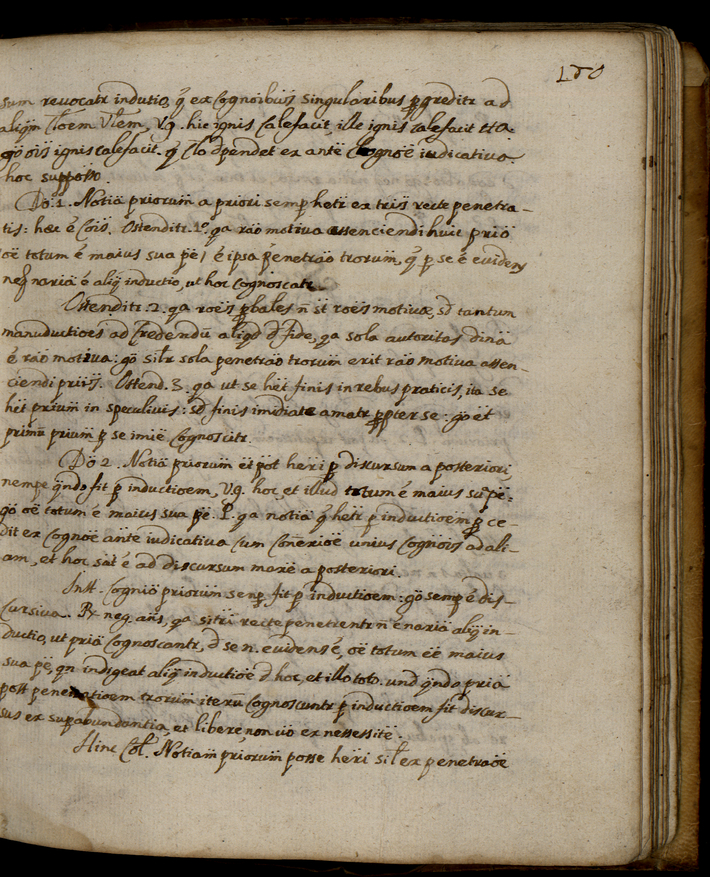 150
sum reuocatr inductio, q̃ ex Cognoibus singularibus p̱greditr ad
aliqm̃ Clõem Vlẽm, V.g. hic ignis Calefacit, ille ignis calefacit et ita
gõ oĩs ignis calefacit. q̃ Clõ dpendet ex antẽ Cognoẽ iudicativa.
hoc supposso.
Dõ. 1. Notiã priorum̃ a priori semp heri ex tr̃is recte penetra-
tis: hæc ẽ Cõis. Ostenditr. 1º. qa raõ motiva assenciendi huic priõ
oẽ totum ẽ maius sua pẽ, ẽ ipsa p̃enetraõ trorum̃, q̃ p se ẽ evidens
neq̃ nariã ẽ aliq̃ inductio, ut hoc cognoscatr.
Ostenditr. 2. qa roẽs p̱bales ñ st roẽs motivæ, sd tantum
manuductioẽs ad Credendũ aliqd d fide, qa sola autoritas dinã
ẽ raõ motiva: gõ silr sola penetraõ trorum̃ erit raõ motiva assen-
ciendi priis̃. Ostend. 3. qa ut se het̃ finis in rebus praticis, ita se
het̃ prium̃ in speculiuis: sd finis imdiatẽ amatr p̱pter se: gõ et̃
primũ prium̃ p se imiẽ Cognoscitr.
Dõ 2. Notiã priorum̃ et̃ pot̃ heri p discursum a posteriori,
nempe qñdo fit p inductioẽm, V.g. hoc, et illud totum ẽ maius suã pẽ:
gõ oẽ totum ẽ maius sua pẽ. P. qa notiã q̃ hetr p inductioẽm p̱ce-
dit ex Cognoẽ antẽ iudicativa cum Conẽxioẽ unius Cognoĩs ad ali-
am, et hoc sat̃ ẽ ad discursum maxẽ a posteriori.
Inst. Cognitiõ priorum̃ semp̱ fit p inductioẽm: gõ semp ẽ dis-
Cursiva. Rx neg. ans̃, qa si tri recte penetrentr ñ ẽ nariã aliq̃ in-
ductio, ut priã Cognoscantr, d se n. evidens ẽ, oẽ totum eẽ maius
sua pẽ, qn indigeat aliq̃ inductioẽ d hoc, et illo toto. und qñdo priã
post penetratioẽm trorum̃ iterũ Cognoscuntr p inductioẽm fit discur-
sus ex supabundantia, et libere, non uõ ex nessessitẽ.
Hinc Col. Notiam̃ priorum̃ posse heri sil̃ ex penetraoẽ